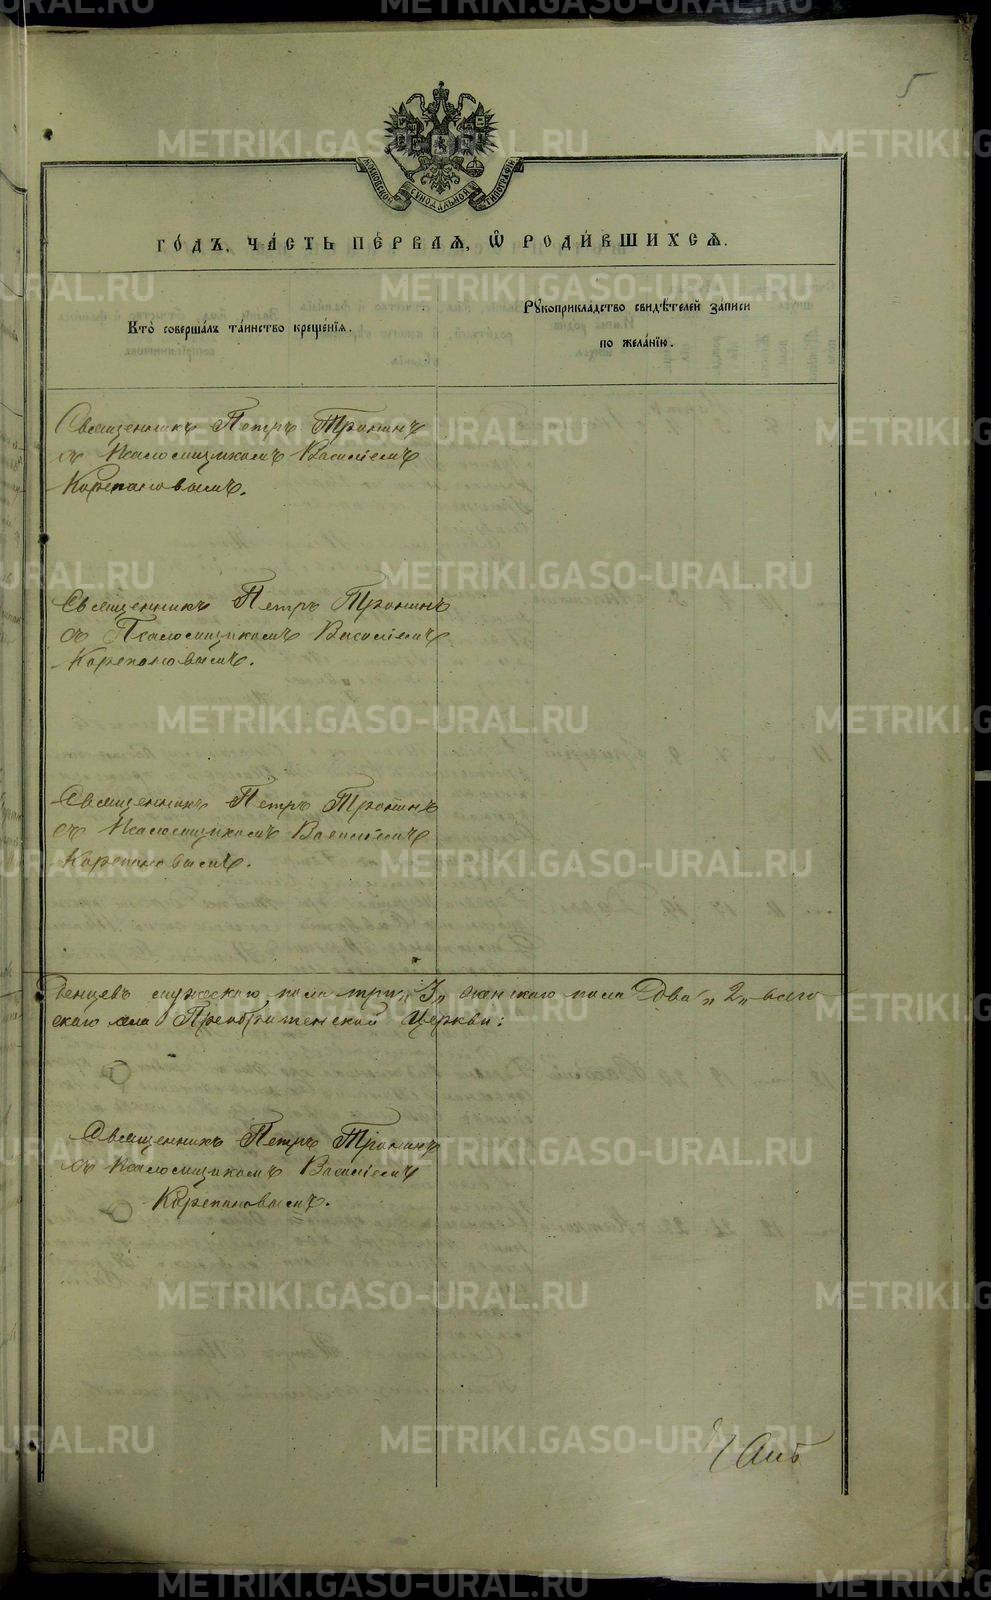 5
МОСКОВСКОЙ СѴНОДАЛЬНОЙ ТИПОГРАФІИ
ГО́ДЪ, ЧА́СТЬ ПЕ́РВАЯ, Ѽ РОДИ́ВШИХСЯ.
Кто̀ соверша́лъ та́инство креще́нїя.
Рукоприкла́дство свидѣ́телей за́писи
по жела́нїю.
Священникъ Петръ Тронинъ
съ Псаломщикомъ Василіемъ
Корепановымъ.
Священникъ Петръ Тронинъ
съ Псаломщикомъ Василіемъ
Корепановымъ.
Священникъ Петръ Тронинъ
съ Псаломщикомъ Василіемъ
Корепановымъ.
денцевъ мужескаго пола три „3„ женскаго пола два „2„ всего
скаго села Преображенской Церкви:
Священникъ Петръ Тронинъ
съ Псаломщикомъ Василіемъ
Корепановымъ.
METRIKI.GASO-URAL.RU